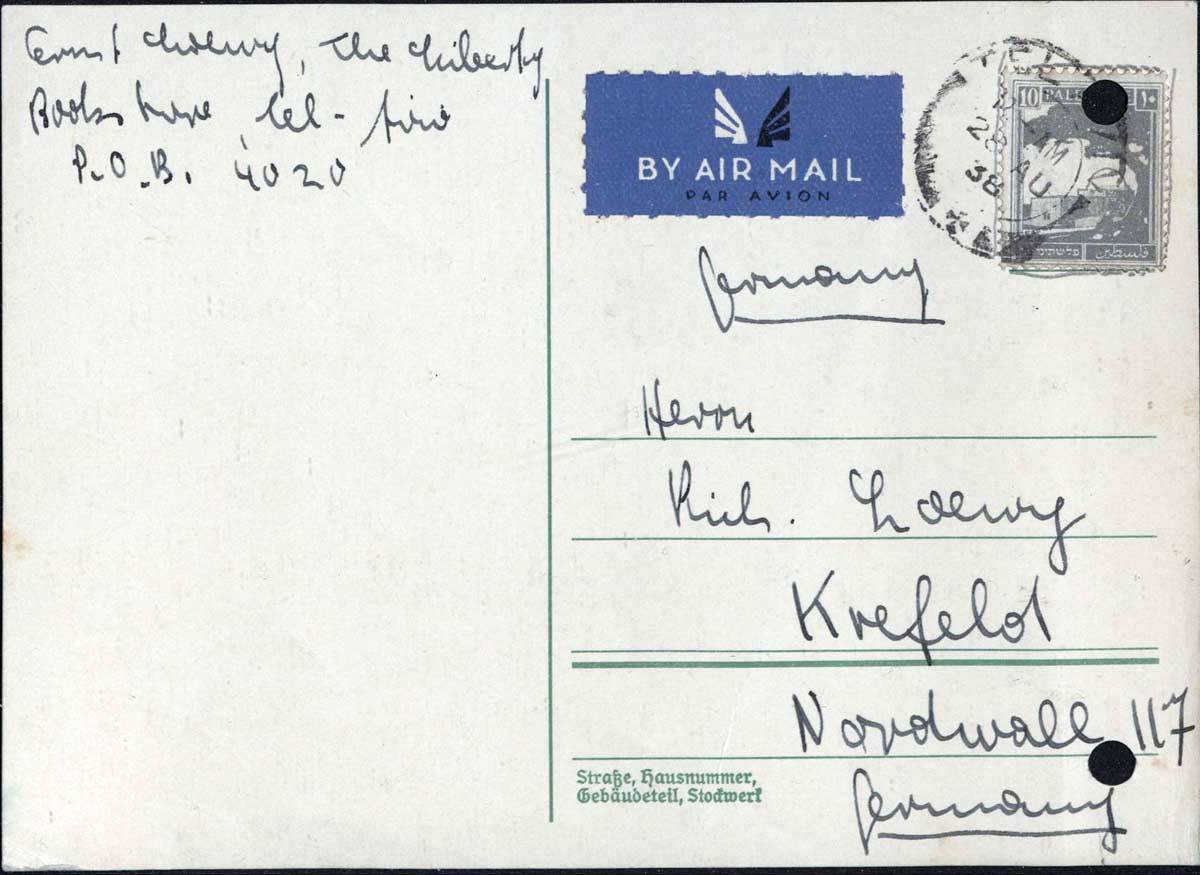 Ernst Loewy, The Liberty
Bookstore, Tel-Aviv
P.O.B. 4020
BY AIR MAIL
PAR AVION
TEL
AM
AU
38
10 PALE ١٠
פלשתינה فلسطين
Germany
Herrn
Rich. Loewy
Krefeld
Nordwall 117
Straße, Hausnummer,
Gebäudeteil, Stockwerk
Germany